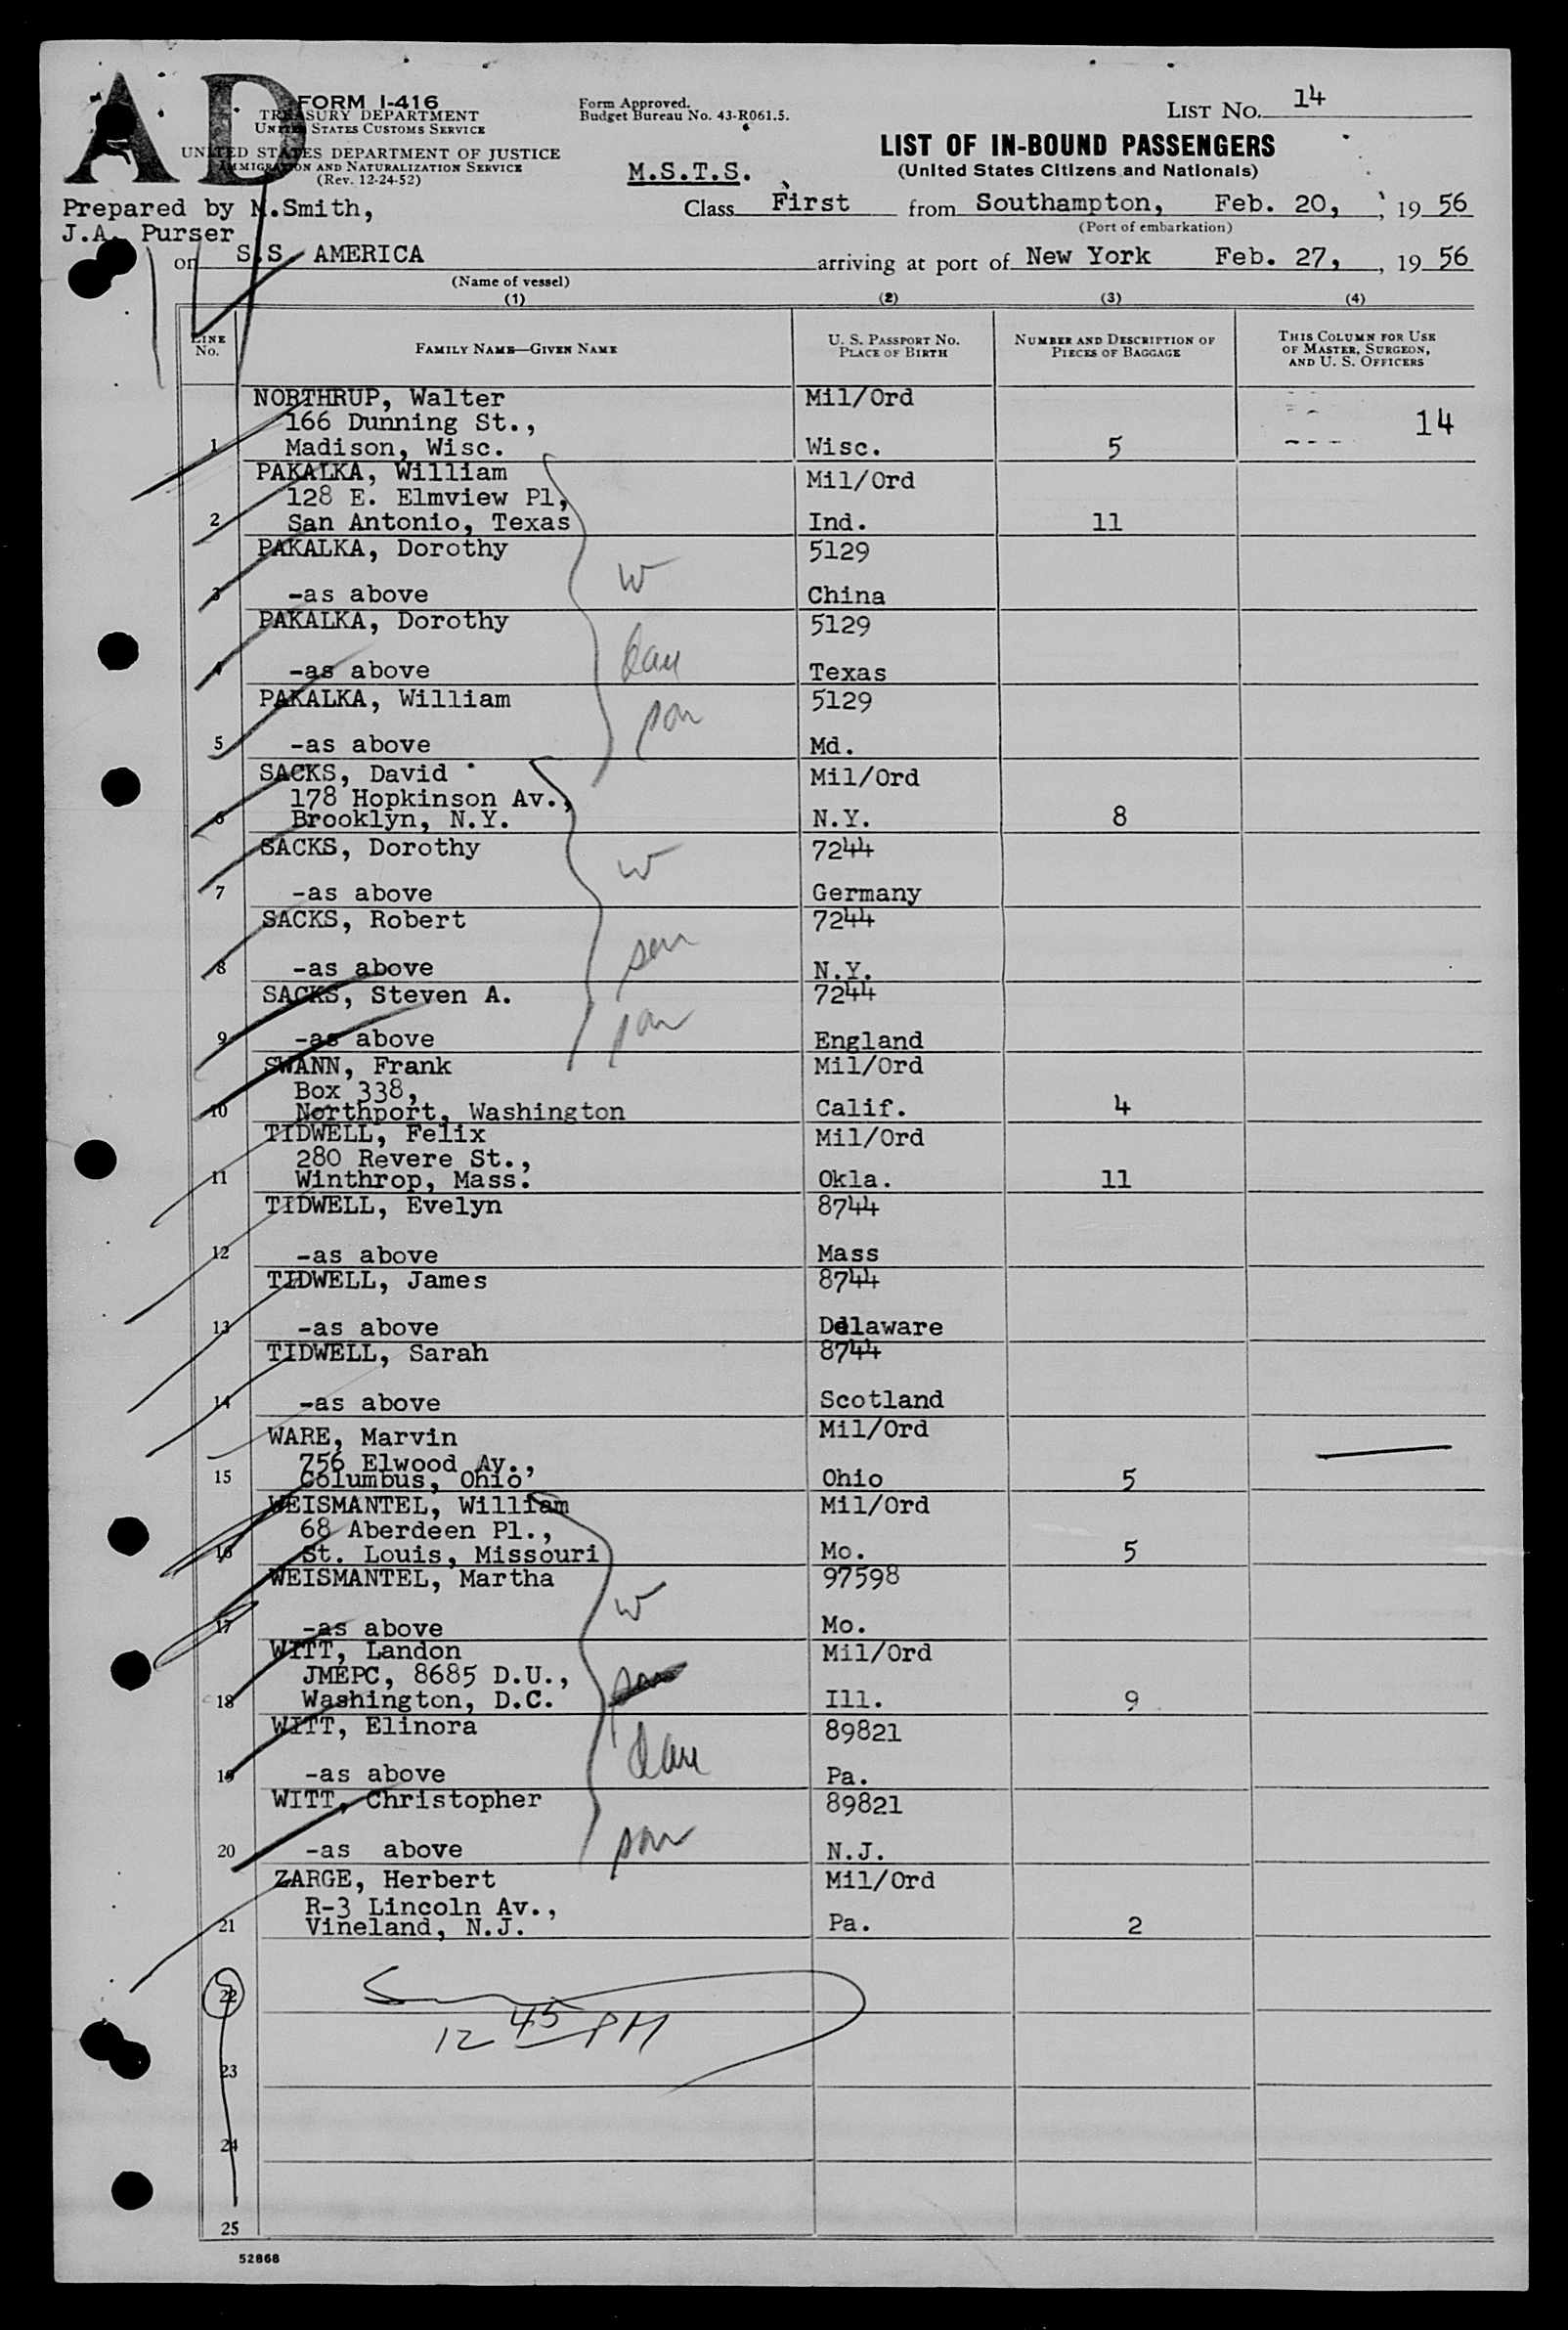 AD
FORM I-416
TREASURY DEPARTMENT
UNITED STATES CUSTOMS SERVICE
UNITED STATES DEPARTMENT OF JUSTICE
IMMIGRATION AND NATURALIZATION SERVICE
(Rev. 12-24-52)
Form Approved.
Budget Bureau No. 43-R061.5.
LIST NO. 14
LIST OF IN-BOUND PASSENGERS
(United States Citizens and Nationals)
M.S.T.S.
Prepared by M.Smith,
J.A. Purser
Class First from Southampton, Feb. 20, , 19 56
(Port of embarkation)
on S.S. AMERICA arriving at port of New York Feb. 27, , 19 56
(Name of vessel)
(1) (2) (3) (4)
LINE NO. FAMILY NAME—GIVEN NAME U. S. PASSPORT NO. PLACE OF BIRTH NUMBER AND DESCRIPTION OF PIECES OF BAGGAGE THIS COLUMN FOR USE OF MASTER, SURGEON, AND U. S. OFFICERS
NORTHRUP, Walter Mil/Ord
166 Dunning St., 14
1 Madison, Wisc. Wisc. 5
PAKALKA, William Mil/Ord
128 E. Elmview Pl,
2 San Antonio, Texas Ind. 11
PAKALKA, Dorothy 5129
w
3 -as above China
PAKALKA, Dorothy 5129
dau
4 -as above Texas
PAKALKA, William 5129
son
5 -as above Md.
SACKS, David Mil/Ord
178 Hopkinson Av.,
6 Brooklyn, N.Y. N.Y. 8
SACKS, Dorothy 7244
w
7 -as above Germany
SACKS, Robert 7244
son
8 -as above N.Y.
SACKS, Steven A. 7244
son
9 -as above England
SWANN, Frank Mil/Ord
Box 338,
10 Northport, Washington Calif. 4
TIDWELL, Felix Mil/Ord
280 Revere St.,
11 Winthrop, Mass. Okla. 11
TIDWELL, Evelyn 8744
12 -as above Mass
TIDWELL, James 8744
13 -as above Delaware
TIDWELL, Sarah 8744
14 -as above Scotland
WARE, Marvin Mil/Ord
756 Elwood Av.,
15 Columbus, Ohio Ohio 5
WEISMANTEL, William Mil/Ord
68 Aberdeen Pl.,
16 St. Louis, Missouri Mo. 5
WEISMANTEL, Martha 97598
w
17 -as above Mo.
WITT, Landon Mil/Ord
JMEPC, 8685 D.U.,
18 Washington, D.C. Ill. 9
WITT, Elinora 89821
dau
19 -as above Pa.
WITT, Christopher 89821
son
20 -as above N.J.
ZARGE, Herbert Mil/Ord
R-3 Lincoln Av.,
21 Vineland, N.J. Pa. 2
22
12 45 PM
23
24
25
52868